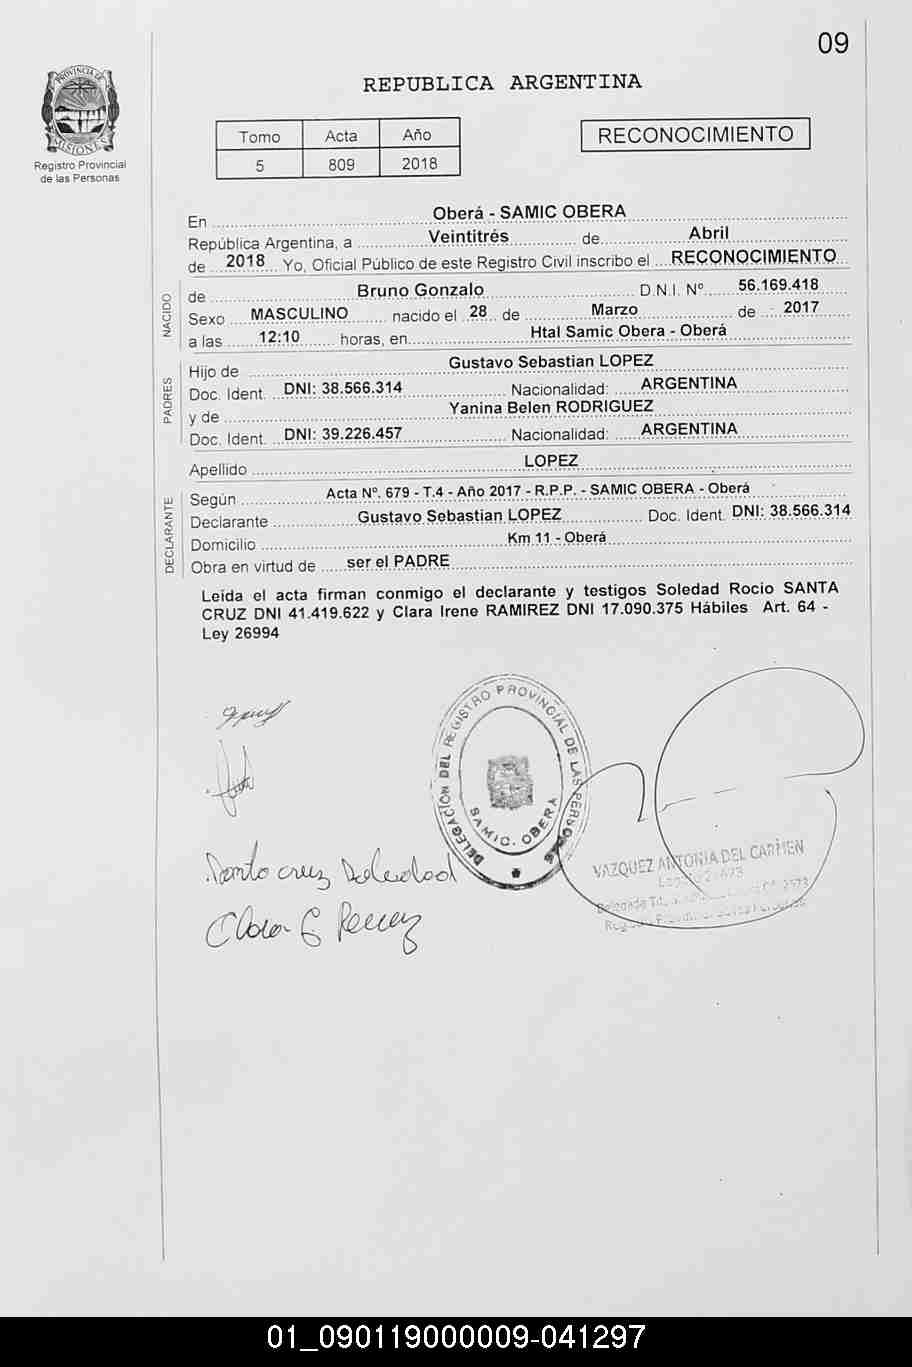 09
PROVINCIA DE
MISIONES
Registro Provincial
de las Personas
REPUBLICA ARGENTINA
Tomo Acta Año
5 809 2018
RECONOCIMIENTO
En Oberá - SAMIC OBERA
República Argentina, a Veintitrés de Abril
de 2018 Yo, Oficial Público de este Registro Civil inscribo el RECONOCIMIENTO
NACIDO
de Bruno Gonzalo D.N.I. Nº 56.169.418
Sexo MASCULINO nacido el 28 de Marzo de 2017
a las 12:10 horas, en Htal Samic Obera - Oberá
PADRES
Hijo de Gustavo Sebastian LOPEZ
Doc. Ident. DNI: 38.566.314 Nacionalidad: ARGENTINA
y de Yanina Belen RODRIGUEZ
Doc. Ident. DNI: 39.226.457 Nacionalidad: ARGENTINA
Apellido LOPEZ
DECLARANTE
Según Acta Nº. 679 - T.4 - Año 2017 - R.P.P. - SAMIC OBERA - Oberá
Declarante Gustavo Sebastian LOPEZ Doc. Ident. DNI: 38.566.314
Domicilio Km 11 - Oberá
Obra en virtud de ser el PADRE
Leída el acta firman conmigo el declarante y testigos Soledad Rocio SANTA
CRUZ DNI 41.419.622 y Clara Irene RAMIREZ DNI 17.090.375 Hábiles Art. 64 -
Ley 26994
DELEGACIÓN DEL REGISTRO PROVINCIAL DE LAS PERSONAS
SAMIC. OBERA
Santa cruz Soledad
Clara
VAZQUEZ ANTONIA DEL CARMEN
01_090119000009-041297